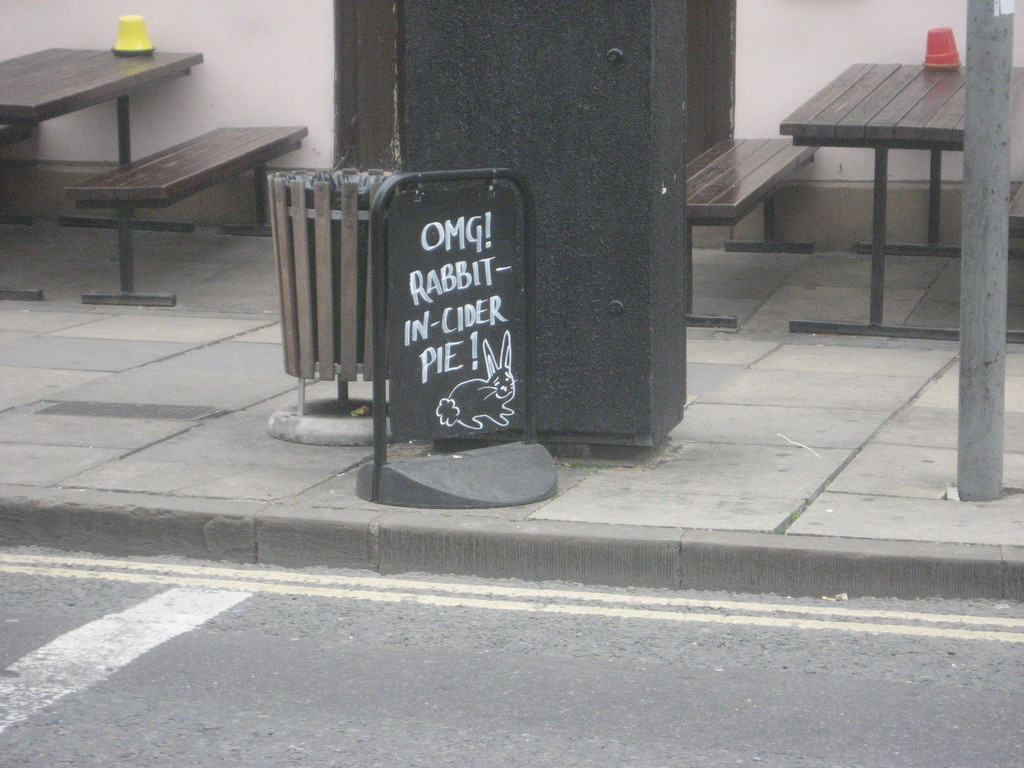 OMG!
RABBIT-
IN-CIDER
PIE!